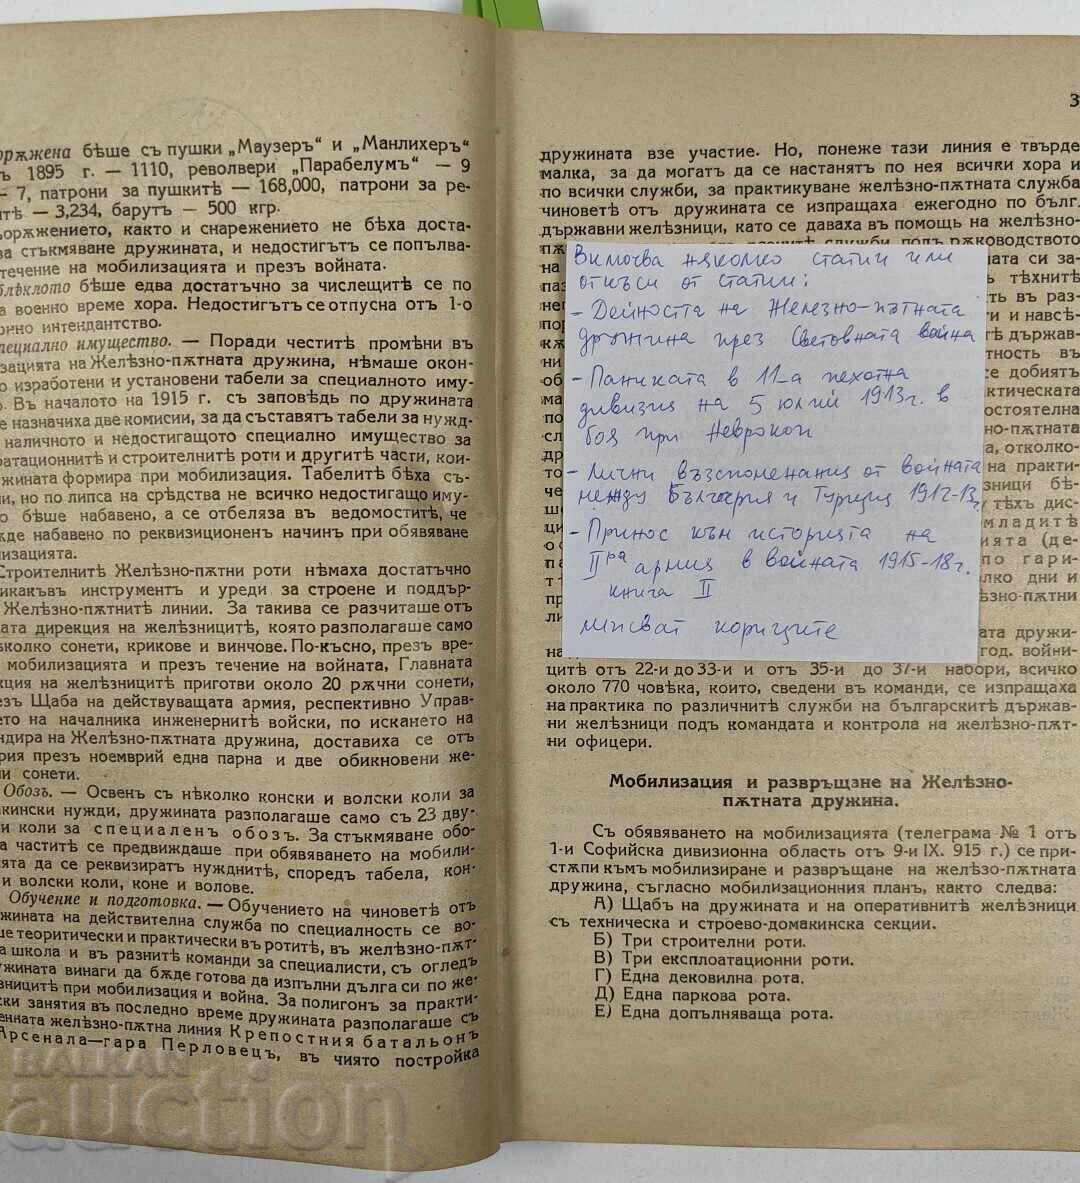 орѫжена бѣше съ пушки „Маузеръ“ и „Манлихеръ“
ъ 1895 г. — 1110, револвери „Парабелумъ“ — 9
— 7, патрони за пушкитѣ — 168,000, патрони за ре-
итѣ — 3,234, барутъ — 500 кгр.
ъоржжението, както и снаряжението не бѣха доста-
за стъкмяване дружината, и недостигътъ се попълва-
течение на мобилизацията и презъ войната.
блѣклото бѣше едва достатъчно за числещитѣ се по
а военно време хора. Недостигътъ се отпусна отъ 1-о
онно интендантство.
пециално имущество. — Поради честитѣ промѣни въ
изацията на Желѣзно-пѫтната дружина, нѣмаше окон-
о изработени и установени табели за специалното иму-
о. Въ началото на 1915 г. съ заповѣдь по дружината
е назначиха две комисии, за да съставятъ табели за нужд-
наличното и недостигащото специално имущество за
ратационнитѣ и строителнитѣ роти и другитѣ части, кои-
жината формира при мобилизация. Табелитѣ бѣха съ-
ни, но по липса на срѣдства не всичко недостигащо иму-
о бѣше набавено, а се отбеляза въ ведомоститѣ, че
жде набавено по реквизиционенъ начинъ при обявяване
илизацията.
Строителнитѣ Желѣзно-пѫтни роти нѣмаха достатъчно
никакъвъ инструментъ и уреди за строене и поддър-
Желѣзно-пѫтнитѣ линии. За такива се разчиташе отъ
ната дирекция на желѣзницитѣ, която разполагаше само
ѣколко сонети, крикове и винчове. По-късно, презъ вре-
мобилизацията и презъ течение на войната, Главната
кция на желѣзницитѣ приготви около 20 рѫчни сонети,
езъ Щаба на действуващата армия, респективно Управ-
ето на началника инженернитѣ войски, по искането на
ндира на Желѣзно-пѫтната дружина, доставиха се отъ
рия презъ ноемврий една парна и две обикновени же-
ни сонети.
Обозъ. — Освенъ съ нѣколко конски и волски коли за
акински нужди, дружината разполагаше само съ 23 дву-
и коли за специаленъ обозъ. За стъкмяване обо-
а частитѣ се предвиждаше при обявяването на мобили-
ята да се реквизиратъ нужднитѣ, споредъ табела, кон-
и волски коли, коне и волове.
Обучение и подготовка. — Обучението на чиноветѣ отъ
жината на действителна служба по специалность се во-
ше теоритически и практически въ ротитѣ, въ желѣзно-пѫт-
а школа и въ разнитѣ команди за специалисти, съ огледъ
ужината винаги да бѫде готова да изпълни дълга си по же-
зницитѣ при мобилизация и война. За полигонъ за практи-
ски занятия въ последно време дружината разполагаше съ
енната желѣзно-пѫтна линия Крепостния батальонъ
Арсенала—гара Перловецъ, въ чиято постройка
3
дружината взе участие. Но, понеже тази линия е твърде
малка, за да могатъ да се настанятъ по нея всички хора и
по всички служби, за практикуване желѣзно-пѫтната служба
чиноветѣ отъ дружината се изпращаха ежегодно по бълг.
държавни желѣзници, като се даваха въ помощь на желѣзно-
Включва няколко статии или
откъси от статии:
- Дейността на Железно-пътната
дружина през Световната война
- Паниката в 11-а пехотна
дивизия на 5 юлий 1913г. в
боя при Неврокоп
- Лични възспоменания от войната
между България и Турция 1912-13г.
- Принос към историята на
IIра армия в войната 1915-18г.
книга II
липсват кориците
ната дружи-
год. войни-
цитѣ отъ 22-и до 33-и и отъ 35-и до 37-и набори, всичко
около 770 човѣка, които, сведени въ команди, се изпращаха
на практика по различнитѣ служби на българскитѣ държав-
ни желѣзници подъ командата и контрола на желѣзно-пѫт-
ни офицери.
Мобилизация и развръщане на Желѣзно-
пѫтната дружина.
Съ обявяването на мобилизацията (телеграма № 1 отъ
1-и Софийска дивизионна область отъ 9-и IX. 915 г.) се при-
стѫпи къмъ мобилизиране и развръщане на желѣзо-пѫтната
дружина, съгласно мобилизационния планъ, както следва:
А) Щабъ на дружината и на оперативнитѣ желѣзници
съ техническа и строево-домакинска секции.
Б) Три строителни роти.
В) Три експлоатационни роти.
Г) Една дековилна рота.
Д) Една паркова рота.
Е) Една допълняваща рота.
BALKAN
auction